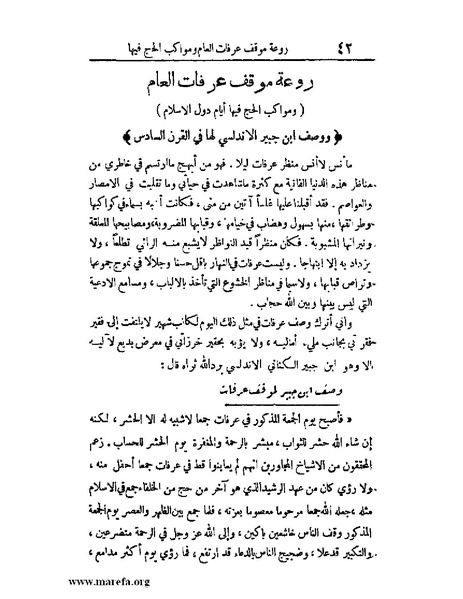 ٤٢ روعة موقف عرفات العام ومواكب الحج فيها
روعة موقف عرفات العام
( ومواكب الحج فيها أيام دول الاسلام )
﴿ ووصف ابن جبير الاندلسي لها في القرن السادس ﴾
ما أنس لا أنس منظر عرفات ليلا . فهو من أبهج ما ارتسم في خاطري من
مناظر هذه الدنيا الفانية مع كثرة ما شاهدت في حياتي وما تقلبت في الامصار
والعواصم . فقد أقبلنا عليها غلساً آتين من منى ، فكانت أشبه بسماء في كواكبها
وطرائقها ، منها بسهول وهضاب في خيامها ، وقبابها المضروبة ، ومصابيحها المعلقة
ونيرانها المشبوبة . فكان منظراً قيد النواظر لا يشبع منه الرائي تطلعاً ، ولا
يزداد به إلا ابتهاجا . وليست عرفات في النهار بأقل حسنا وجلالا في تموج جموعها
وتراص قبابها ، ولاسيما في مناظر الخشوع التي تأخذ بالالباب ، ومسامع الادعية
التي ليس بينها وبين الله حجاب .
واني أترك وصف عرفات في مثل ذلك اليوم لكاتب شهير لا يلتفت إلى فقير
فقرتي بجانب ملي أماليه ، ولا يؤبه بحقير خرزاتي في معرض بديع لآليه
ألا وهو ابن جبير الكناني الاندلسي برد الله ثراه قال :
وصف ابن جبير لموقف عرفات
« فأصبح يوم الجمعة المذكور في عرفات جمعا لا شبيه له الا الحشر ، لكنه
إن شاء الله حشر للثواب ، مبشر بالرحمة والمغفرة يوم الحشر للحساب . زعم
المحققون من الاشياخ المجاورين انهم لم يعاينوا قط في عرفات جمعا أحفل منه ،
ولا رؤي كان من عهد الرشيد الذي هو آخر من حج من الخلفاء جمع في الاسلام
مثله ، جعله الله جمعا مرحوما معصوما بعزته . فلما جمع بين الظهر والعصر يوم الجمعة
المذكور وقف الناس خاشعين باكين ، وإلى الله عز وجل في الرحمة متضرعين ،
والتكبير قد علا ، وضجيج الناس بالدعاء قد ارتفع ، فما رؤي يوم أكثر مدامع ،
www.marefa.org